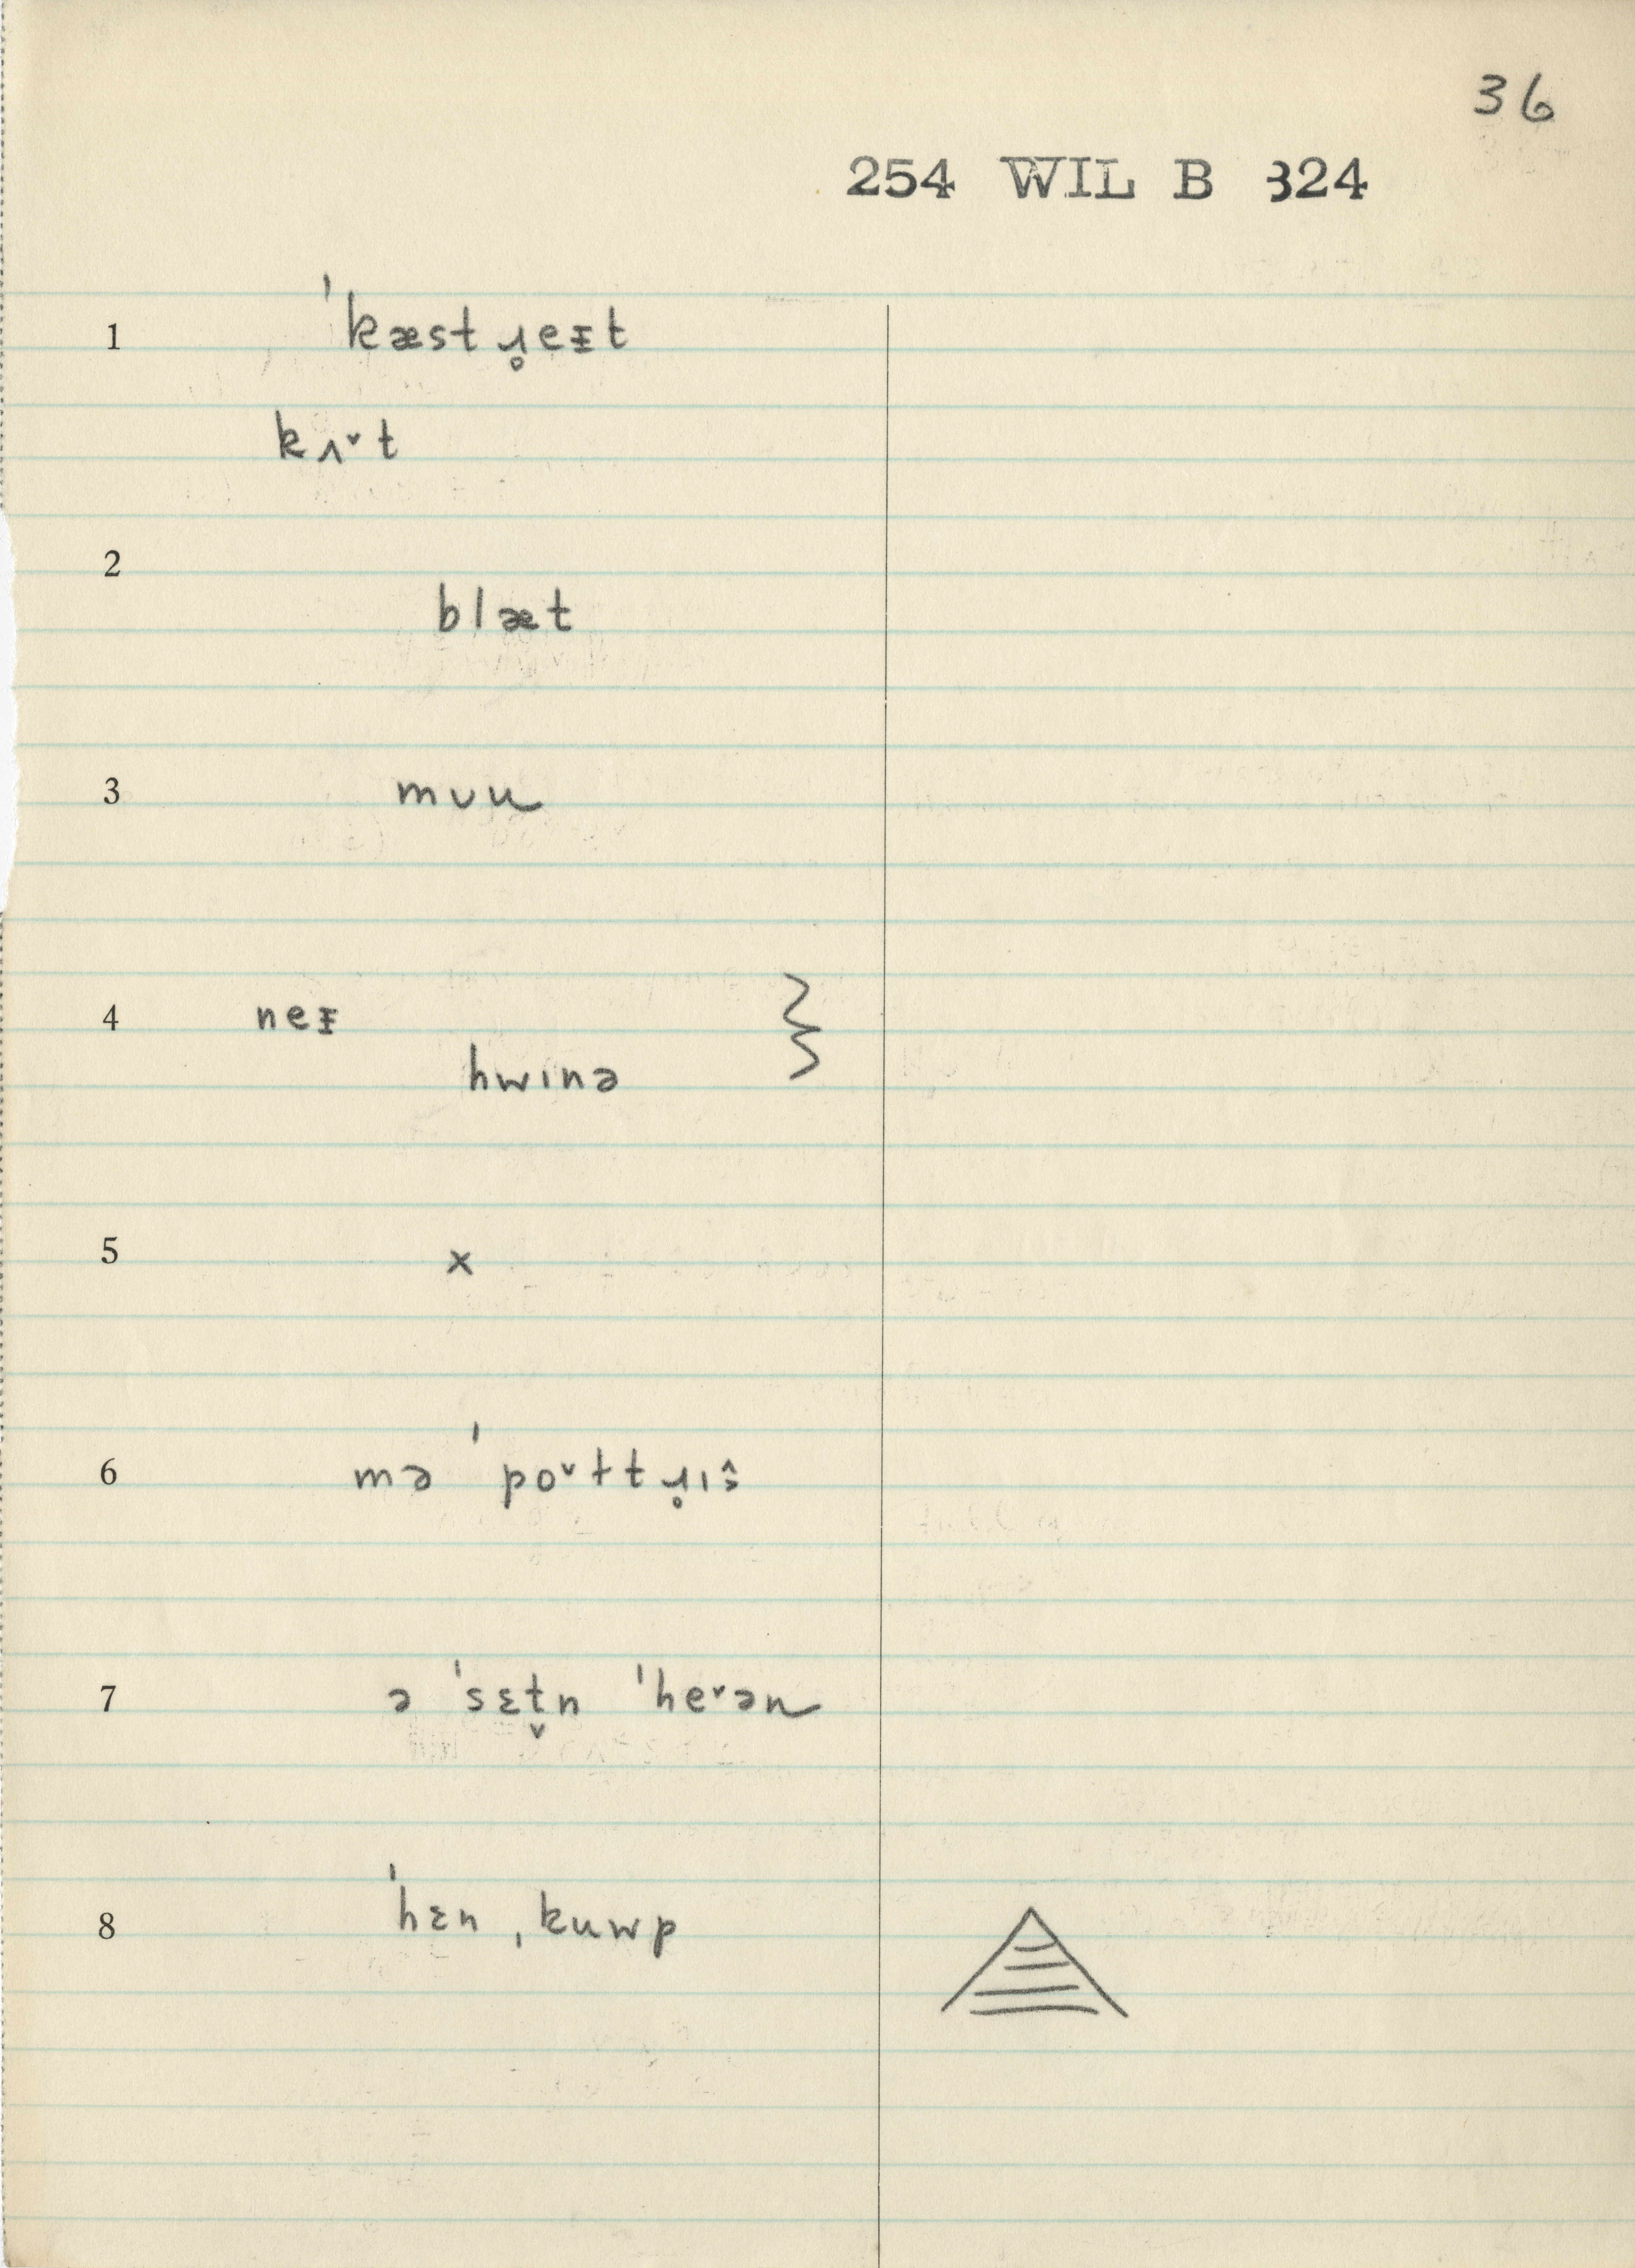 36
254 WIL B 324
1 ˈkæstɹ̥eᵻt
kʌ˅t
2
blæt
3 mʋu
4 neᵻ
hwɪnə
5 x
6 mə ˈpo˅ttɹ̥ɪŝ
7 ə ˈsɛt̬n ˈhe˅ən
8 ˈhɛn ˌkuwp